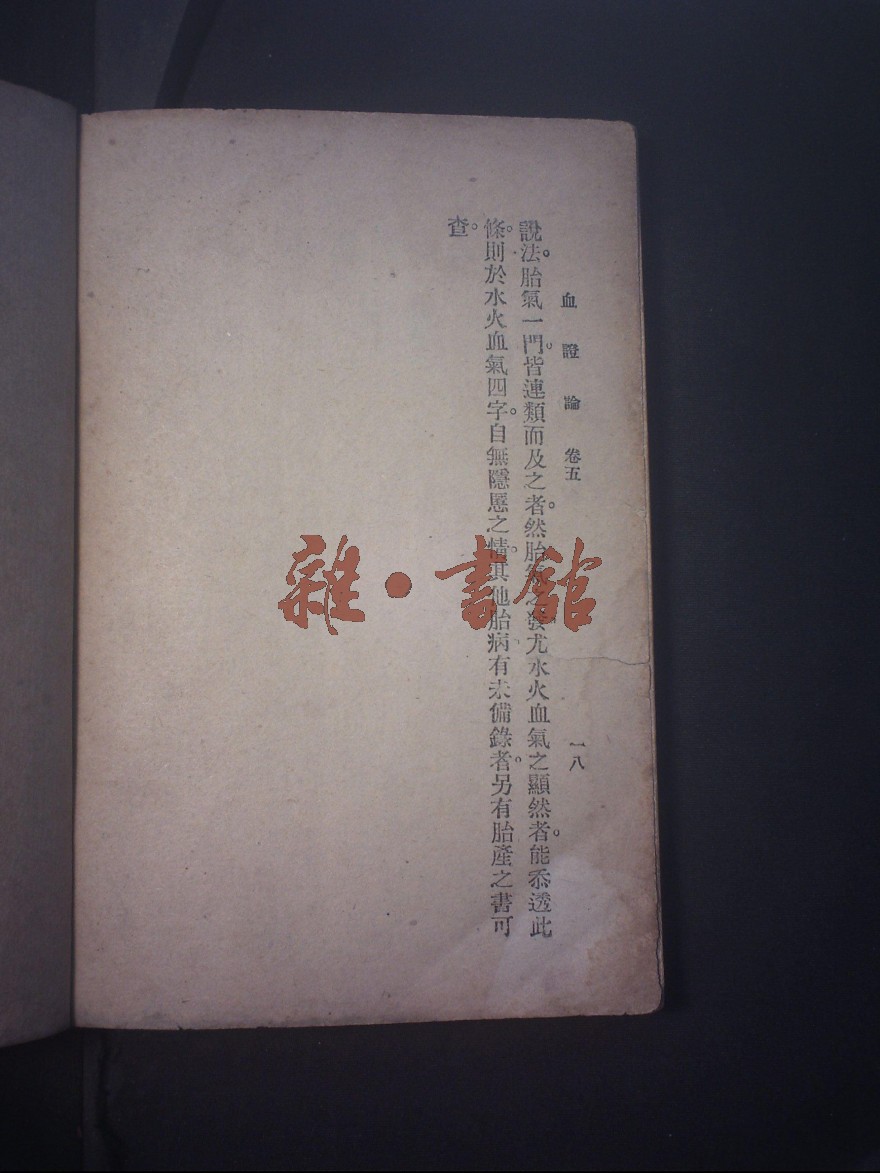 血證論 卷五 一八
說法。胎氣一門。皆連類而及之者。然胎氣之發。尤水火血氣之顯然者。能叅透此
條。則於水火血氣四字。自無隱慝之情。其他胎病。有未備錄者。另有胎產之書可
查。
雜·書館